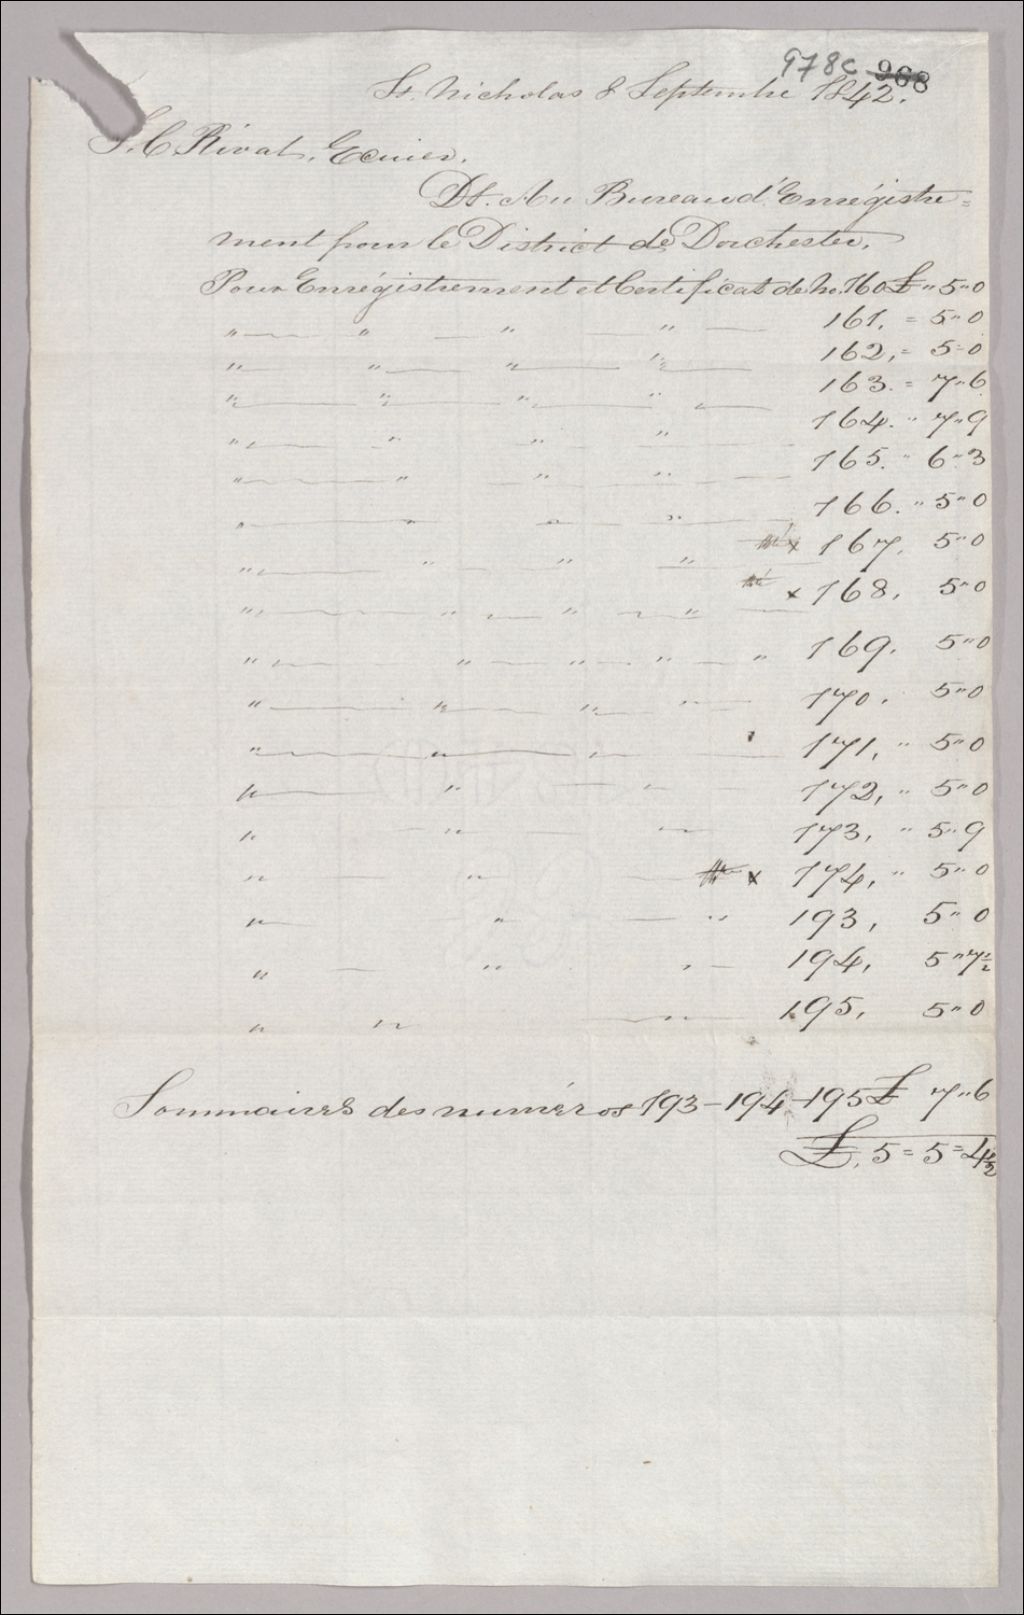 978c 968
St. Nicholas 8 Septembre 1842.
J. C. Rival, Ecuier.
Dt. Au Bureau d'Enrégistre=
ment pour le District de Dorchester.
Pour Enrégistrement et Certificat de No. 160 £ " 5 " 0
" " " " 161. = 5 " 0
" " " " 162, = 5 = 0
" " " " 163. = 7 " 6
" " " " 164. " 7 " 9
" " " " 165. " 6 " 3
" " " " 166. " 5 " 0
" " " " x 167. 5 " 0
" " " " x 168. 5 " 0
" " " " " 169. 5 " 0
" " " " 170. 5 " 0
" " " 171, " 5 " 0
" " " 172, " 5 " 0
" " " 173, " 5 " 9
" " x 174, " 5 " 0
" " " 193, 5 " 0
" " " 194, 5 " 7 1/2
" " " 195, 5 " 0
Sommaires des numéros 193 – 194 – 195 £ 7 " 6
£. 5 = 5 = 4 1/2